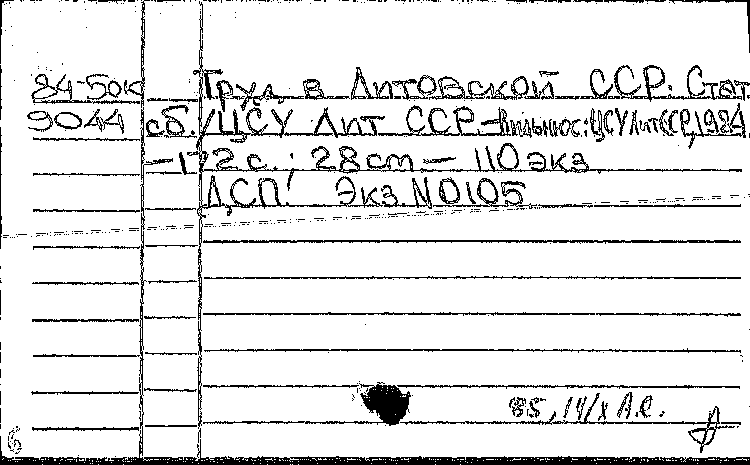 84-50к Труд в Литовской ССР. Стат.
9044 сб./ЦСУ Лит ССР.—Вильнюс: ЦСУ ЛитССР, 1984.
—172 с.; 28 см — 110 экз.
ДСП. Экз. N 0105
85, 14/x А.С.
6